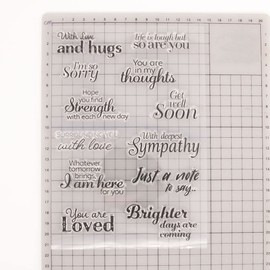 With love
and hugs
life is tough but
so are you
I'm so
Sorry
You are
in my
thoughts
Hope
you find
Strength
with each new day
Get
well
Soon
with love
With deepest
Sympathy
Whatever
tomorrow
brings,
I am here
for you
Just a note
to say...
You are
Loved
Brighter
days are
coming